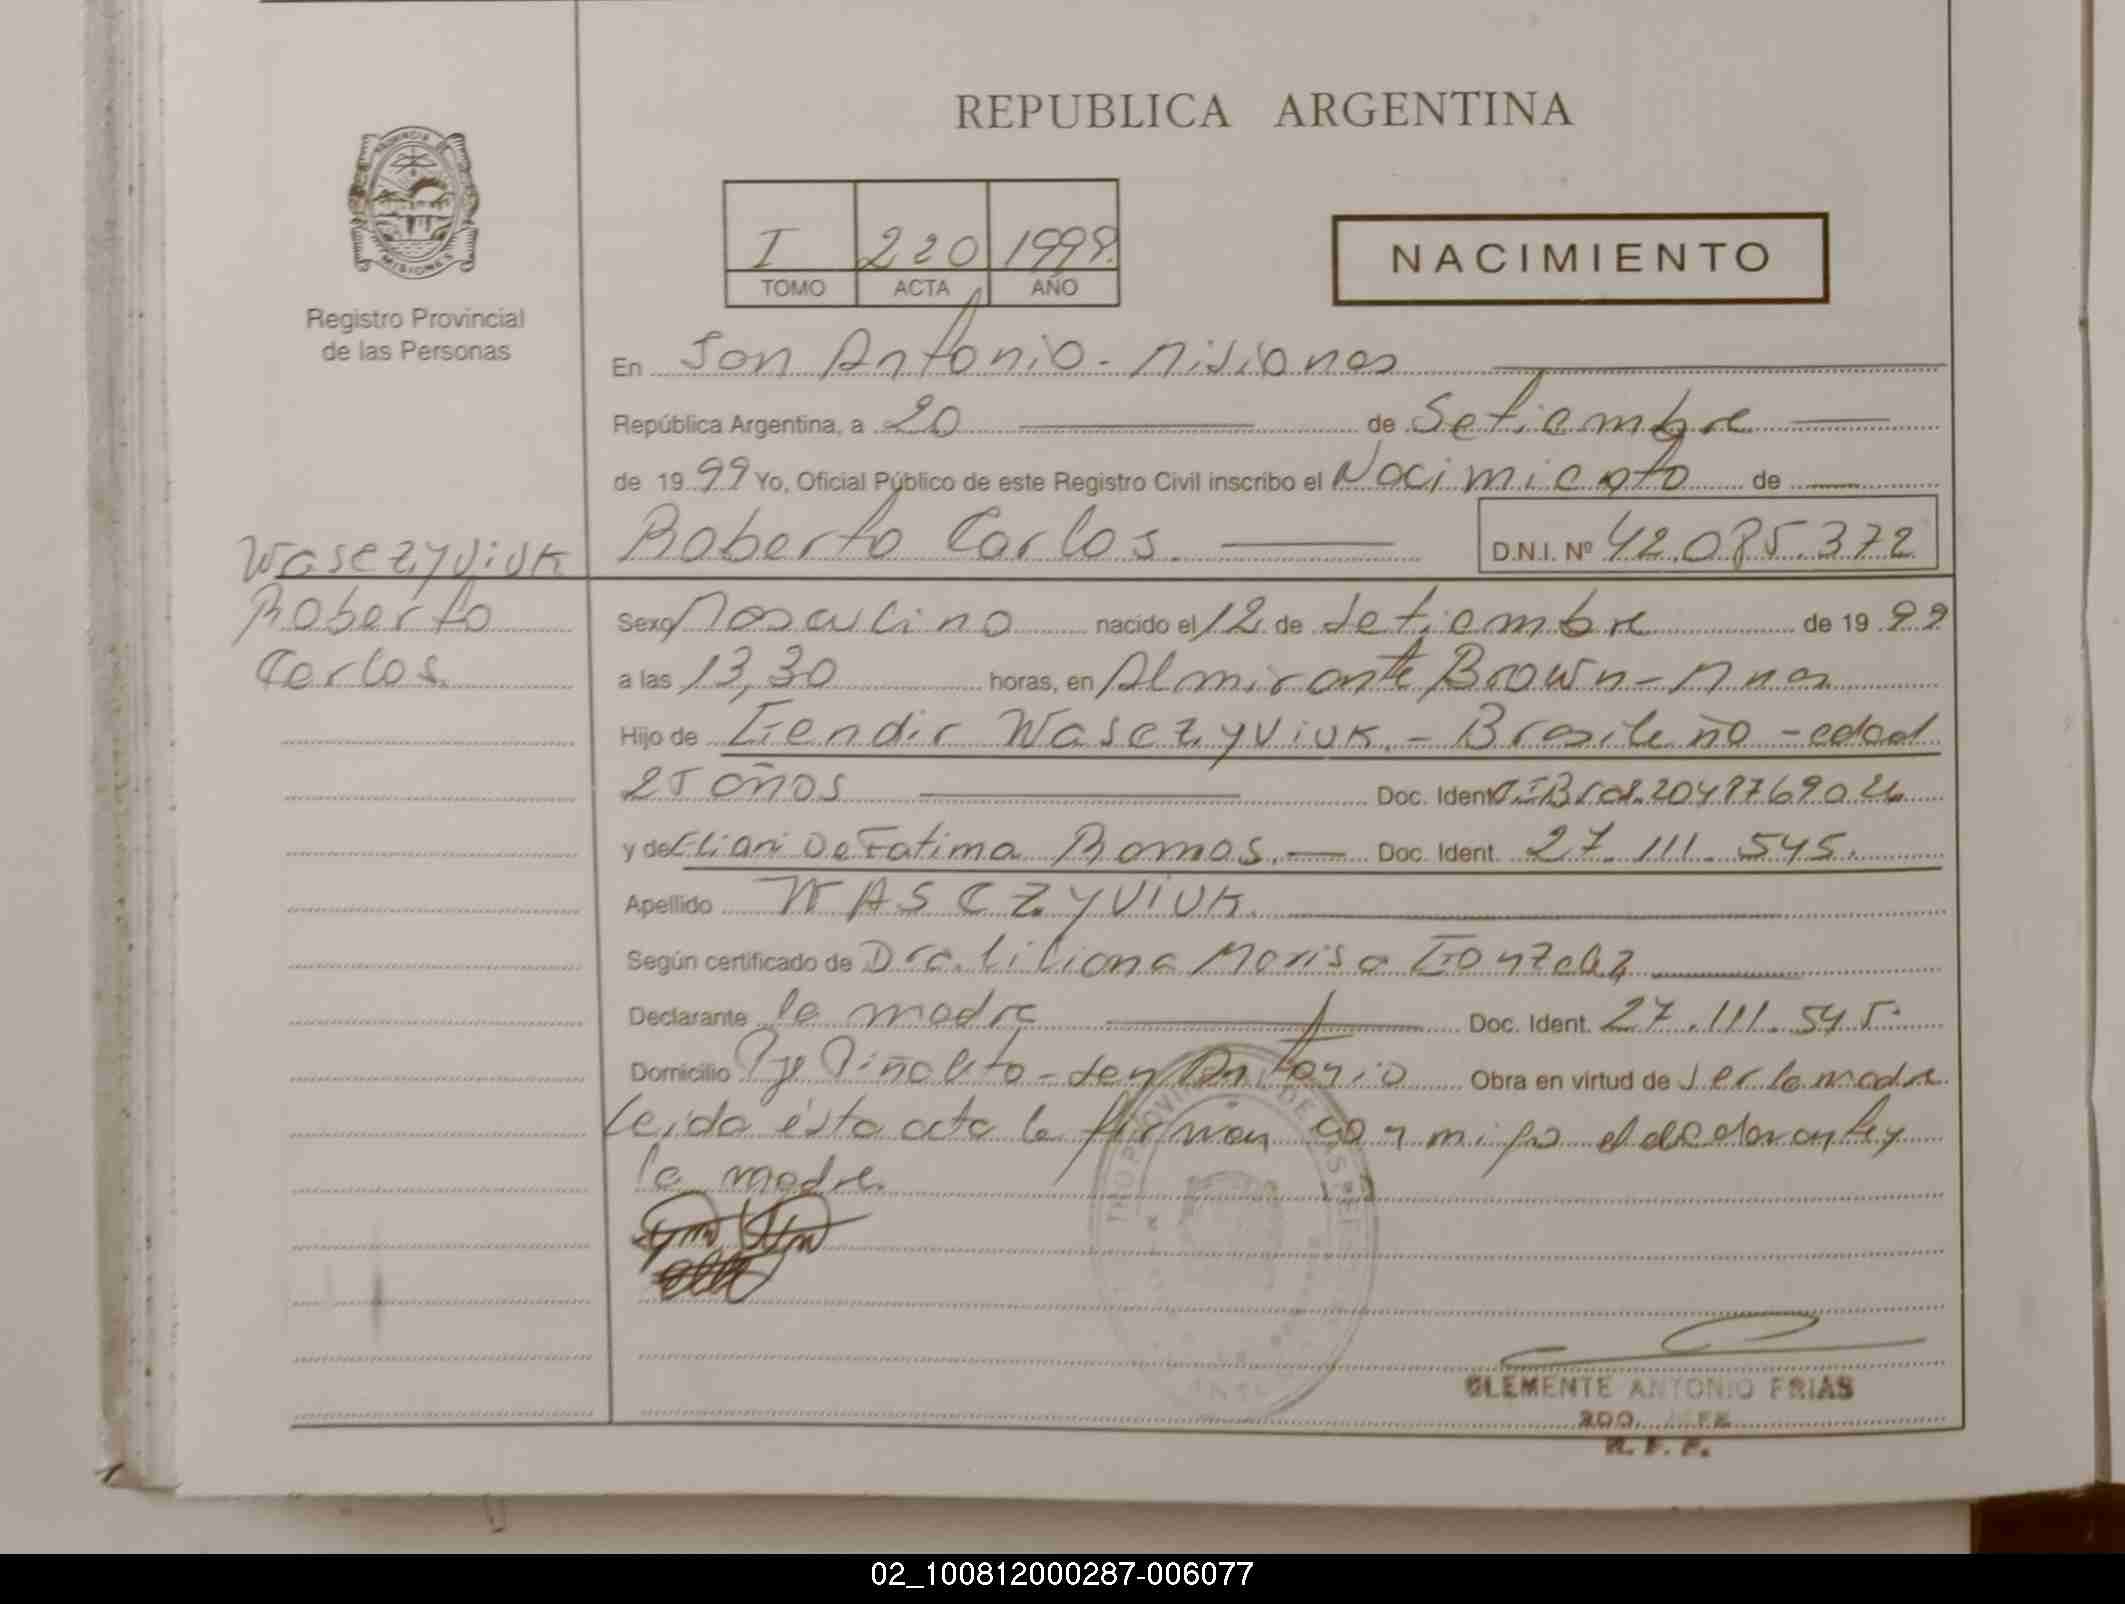 REPUBLICA ARGENTINA
PROVINCIA DE
MISIONES
Registro Provincial
de las Personas
I 220 1999.
TOMO ACTA AÑO
NACIMIENTO
En San Antonio - Misiones
República Argentina, a 20 de Setiembre
de 1999 Yo, Oficial Público de este Registro Civil inscribo el Nacimiento de
Roberto Carlos. D.N.I. Nº 42.085.372
Wasczyviuk
Roberto
Carlos.
Sexo Masculino nacido el 12 de Setiembre de 1999
a las 13,30 horas, en Almirante Brown - Mnes
Hijo de Gendir Wasczyviuk. - Brasileño - edad
25 años Doc. Ident.
y de Eliani De Fatima Ramos. Doc. Ident. 27.111.545.
Apellido WASCZYVIUK.
Según certificado de Dra. Liliana Marisa Gonzalez
Declarante la madre Doc. Ident. 27.111.545.
Domicilio Pje Piñalito - San Antonio Obra en virtud de ser la madre
Leida ésta acta la firman con migo el declarante y
la madre.
CLEMENTE ANTONIO FRIAS
2DO. JEFE
R. P. P.
02_100812000287-006077